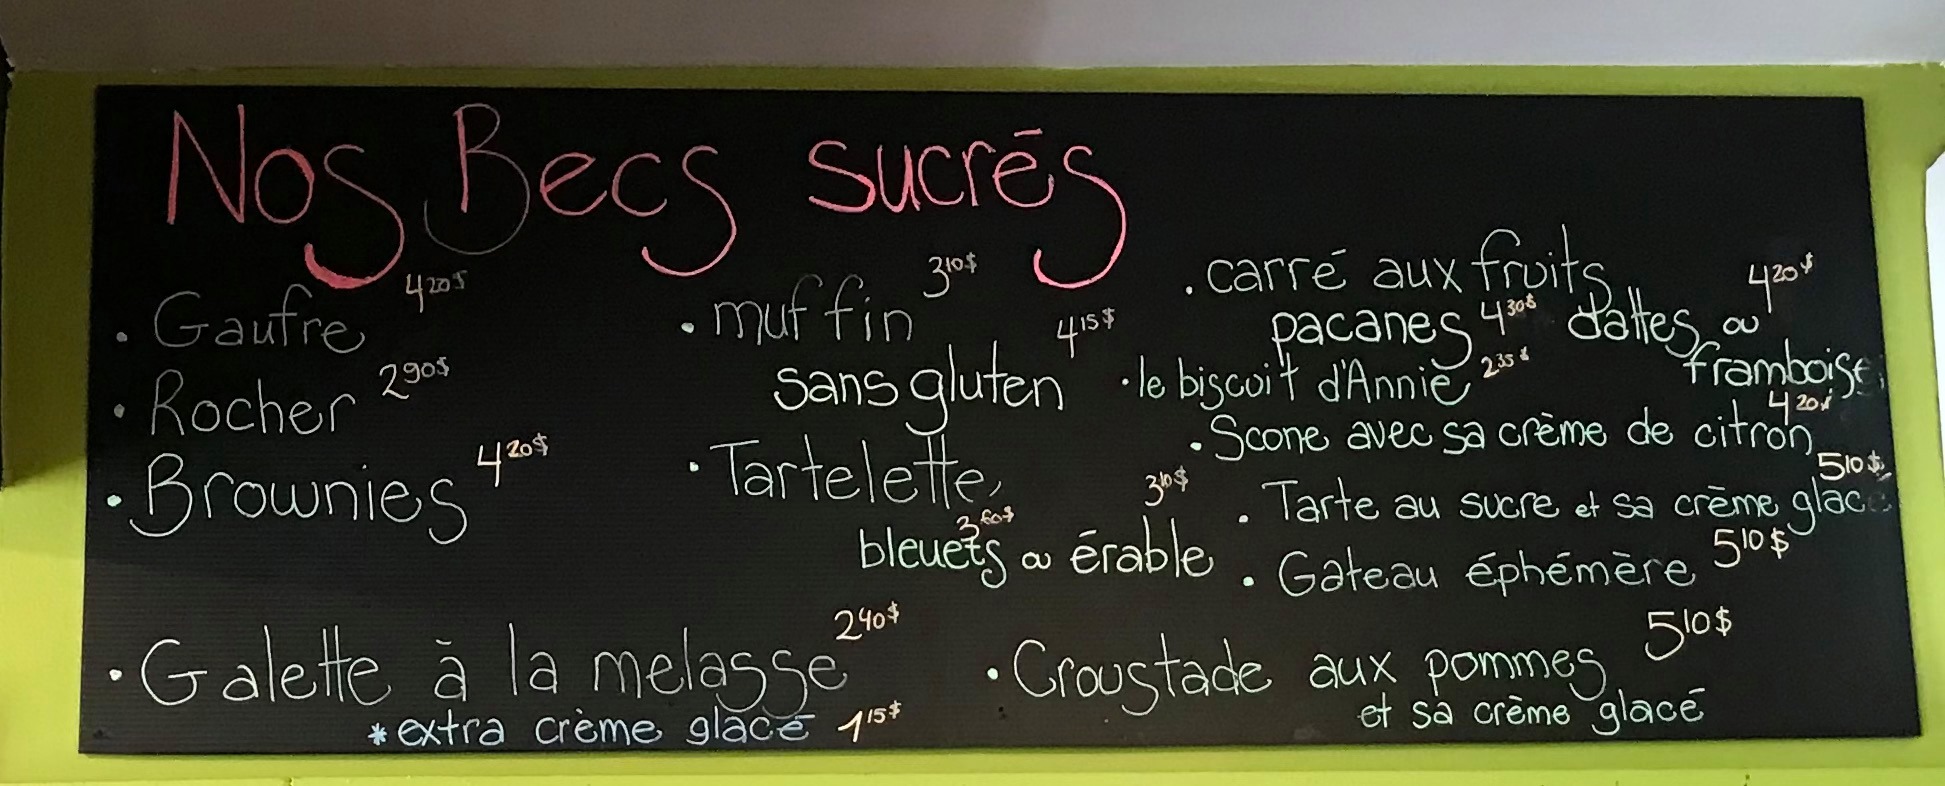 Nos Becs sucrés
• Gaufre 4 20 $
• Rocher 2 90 $
• Brownies 4 20 $
• Galette à la melasse 2 40 $
* extra crème glacé 1 15 $
• muffin 3 10 $
sans gluten 4 15 $
• Tartelette,
bleuets 3 60 $ ou érable 3 10 $
• carré aux fruits
pacanes 4 30 $ dattes ou 4 20 $
framboise
• le biscuit d'Annie 2 35 $
• Scone avec sa crème de citron 4 20 $
• Tarte au sucre et sa crème glacé 5 10 $
• Gateau éphémère 5 10 $
• Croustade aux pommes 5 10 $
et sa crème glacé